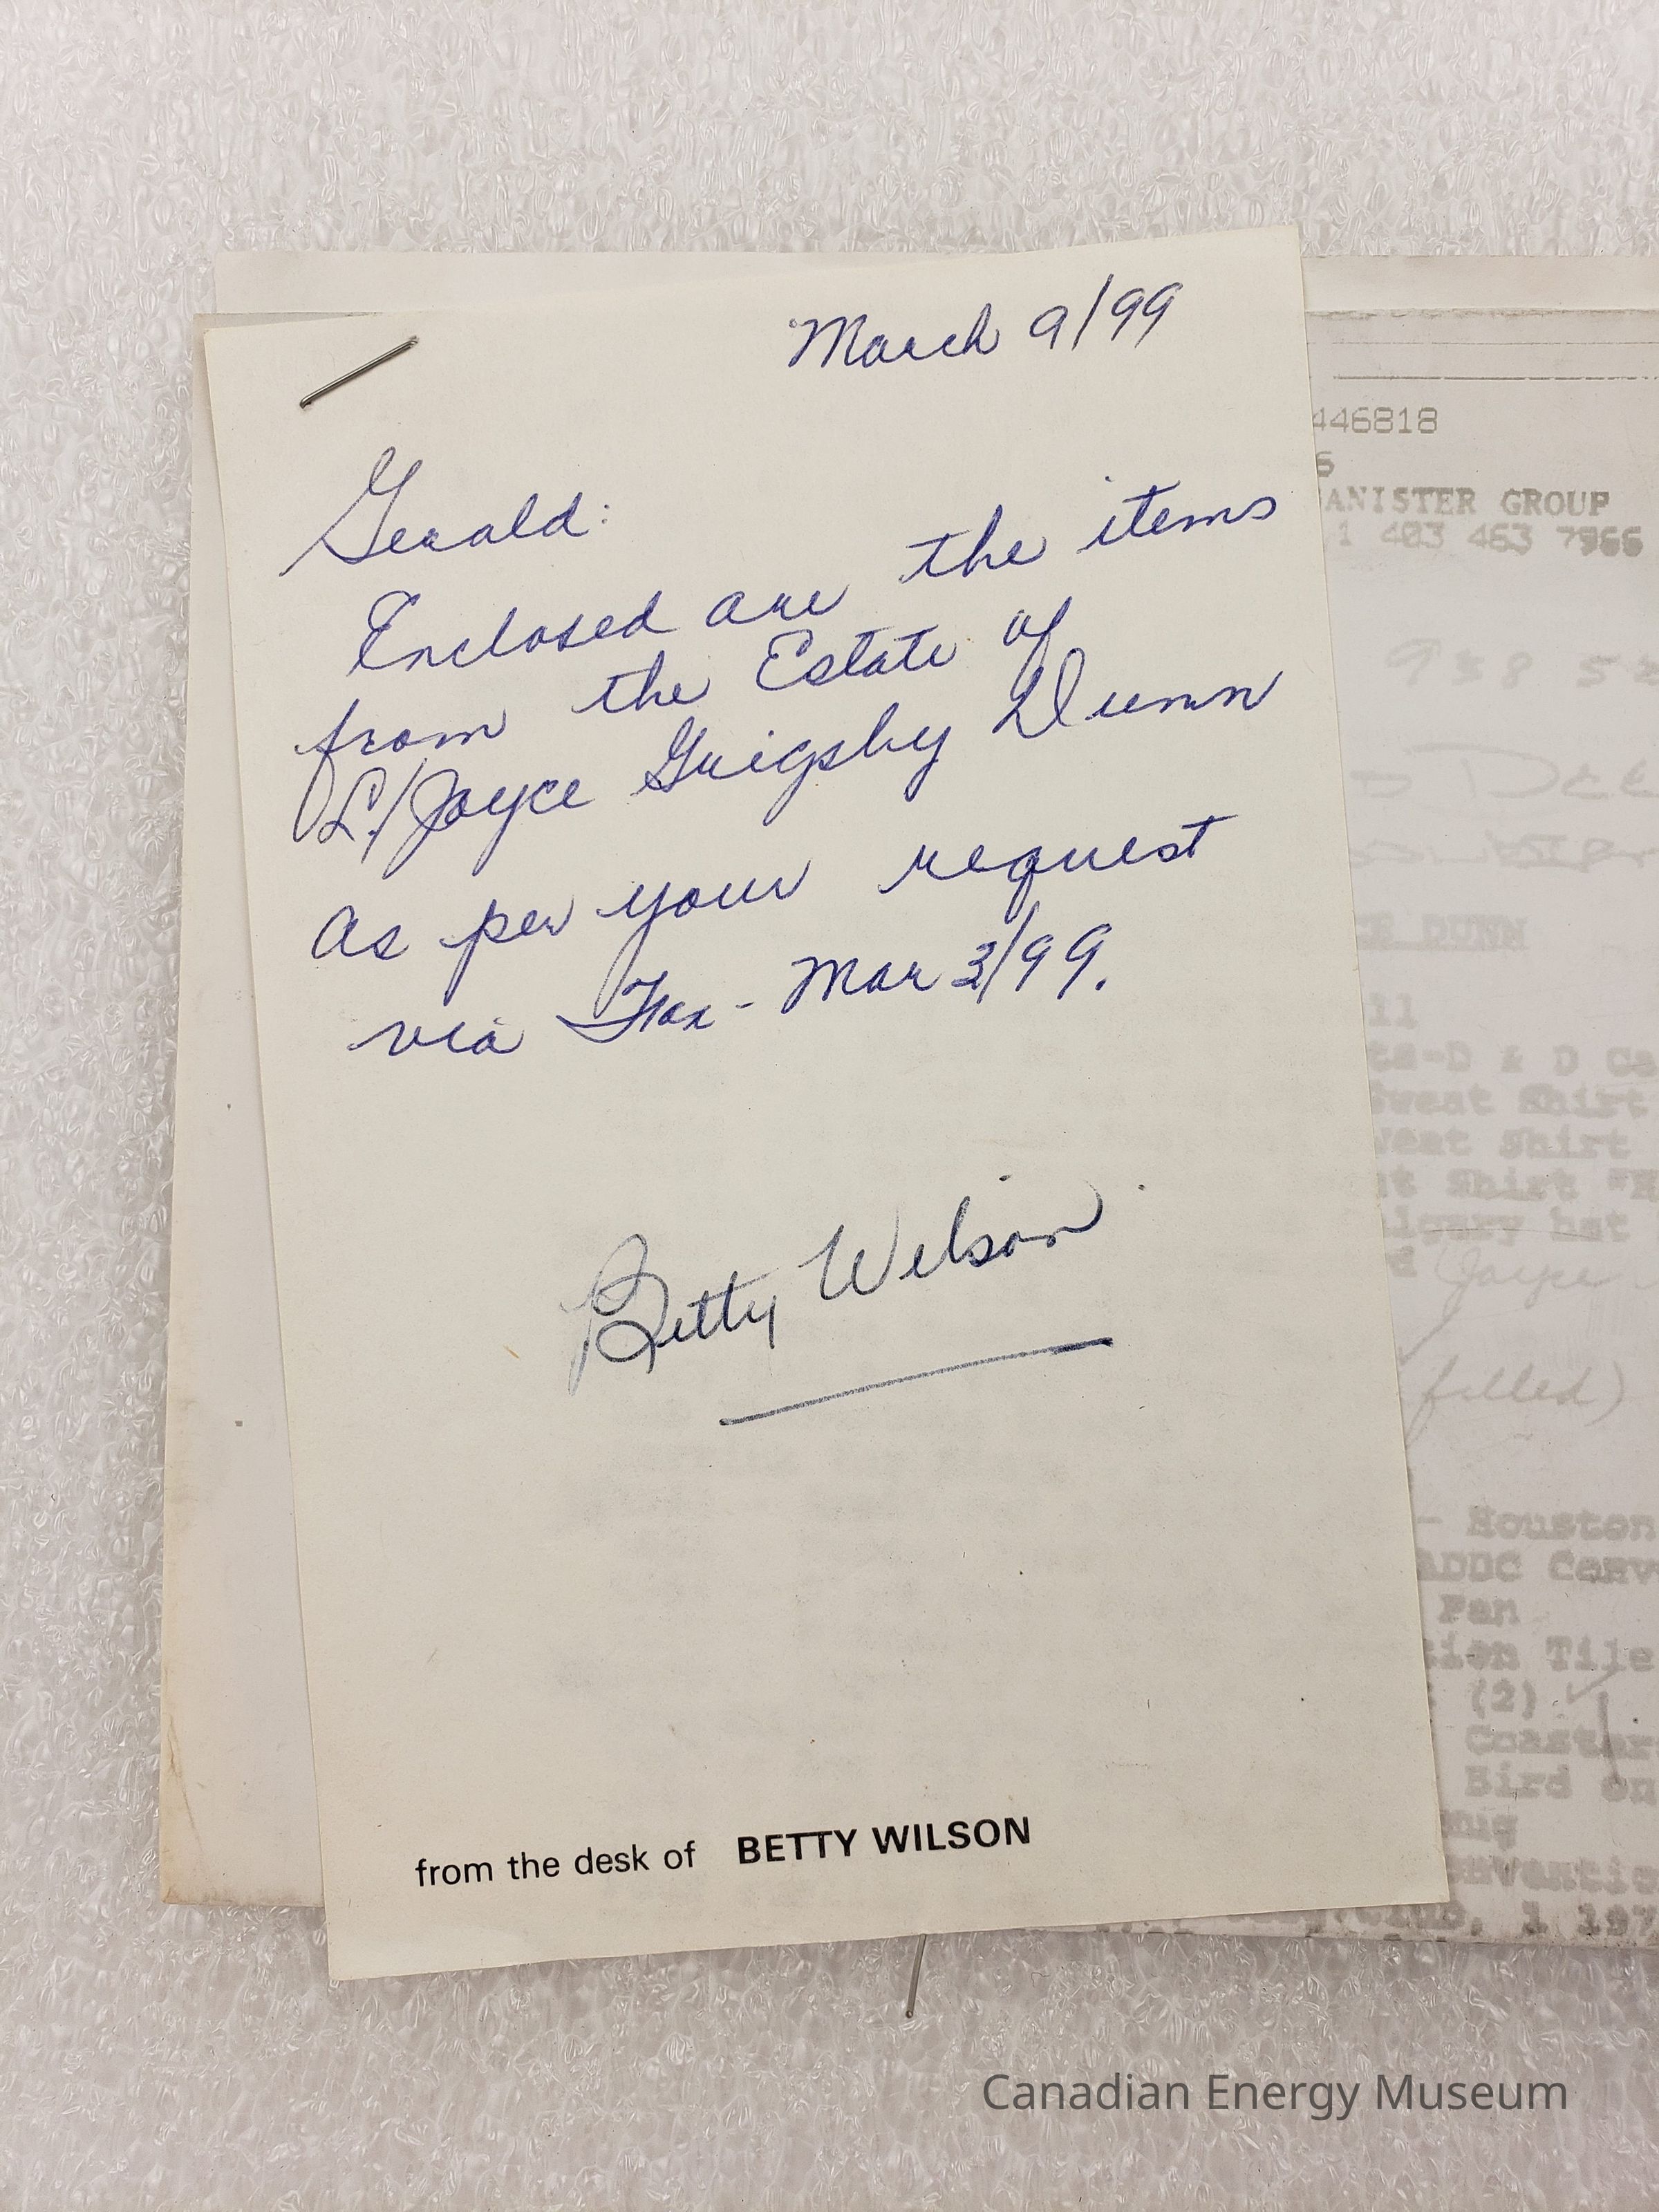 March 9/99
Gerald:
Enclosed are the items
from the Estate of
L/Joyce Grigsby Dunn
as per your request
via Fax - Mar 3/99.
Betty Wilson
from the desk of BETTY WILSON
446818
ANISTER GROUP
1 403 463 7966
938
DUNN
ll
ts-D & D Ca
Sweat Shirt
weat Shirt
t Shirt "H
lgary hat
d Joyce
filled)
- Houston
ADDC Conv
Fan
tion Tile
(2)
Coaster
Bird on
nventio
1 197
Canadian Energy Museum